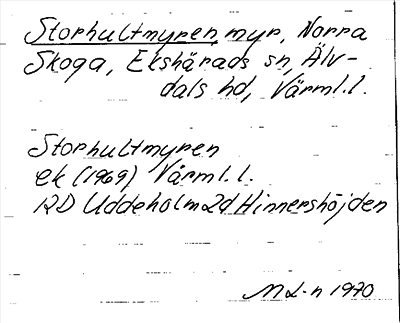 Storhultmyren, myr, Norra
Skoga, Ekshärads sn, Älv-
dals hd, Värml.l.
Storhultmyren
ek (1969) Värml.l.
12D Uddeholm 2d Hinnershöjden
M L-n 1970